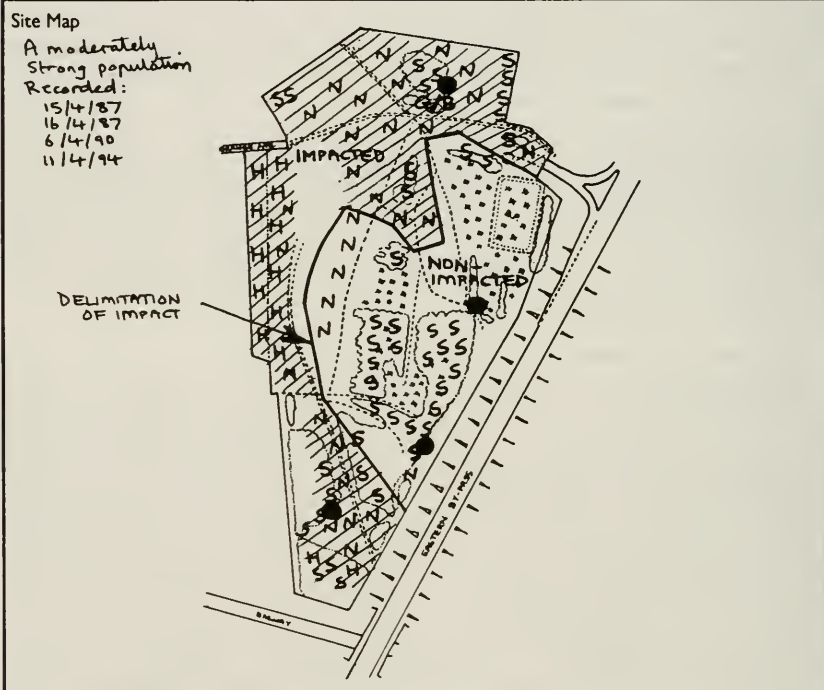 Site Map
A moderately
Strong population
Recorded:
15/4/87
16/4/87
6/4/90
11/4/94
SS
G/B
IMPACTED
NON-
IMPACTED
DELIMITATION
OF IMPACT
EASTERN BY-PASS
RAILWAY